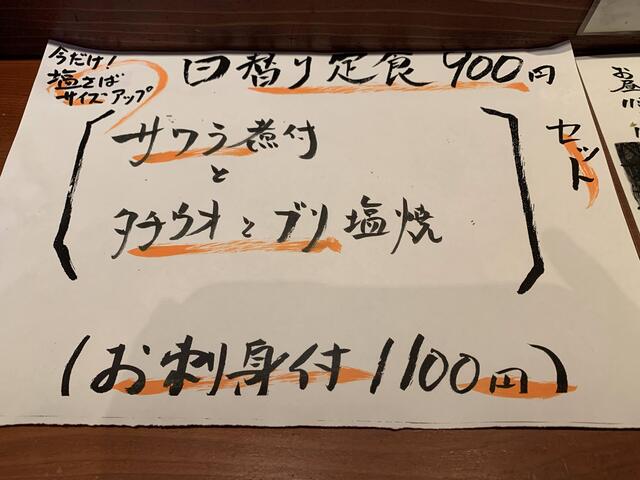 今だけ!
塩さば
サイズアップ
日替り定食 900円
サワラ煮付
と
タチウオとブリ塩焼
セット
(お刺身付1100円)
お昼